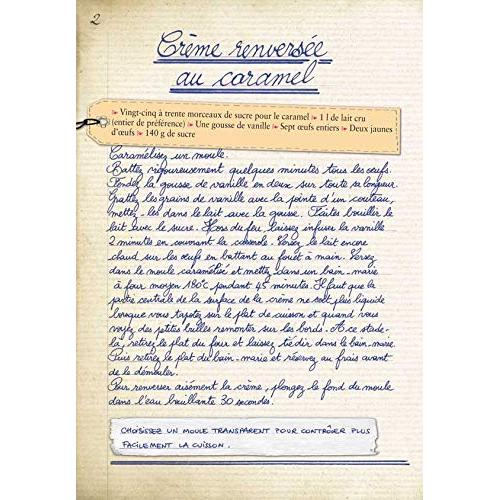 2
Crème renversée
au caramel
Vingt-cinq à trente morceaux de sucre pour le caramel 1 l de lait cru
(entier de préférence) Une gousse de vanille Sept œufs entiers Deux jaunes
d'œufs 140 g de sucre
Caramélisez un moule.
Battez vigoureusement quelques minutes tous les œufs.
Fendez la gousse de vanille en deux sur toute sa longueur.
Grattez les grains de vanille avec la pointe d'un couteau,
mettez-les dans le lait avec la gousse. Faites bouillir le
lait avec le sucre. Hors du feu, laissez infuser la vanille
2 minutes en couvrant la casserole. Versez le lait encore
chaud sur les œufs en battant au fouet à main. Versez
dans le moule caramélisé et mettez dans un bain-marie
à four moyen 180°C pendant 45 minutes. Il faut que la
partie centrale de la surface de la crème ne soit plus liquide
lorsque vous tapotez sur le plat de cuisson et quand vous
voyez des petites bulles remonter sur les bords. A ce stade-
là, retirez le plat du four et laissez tiédir dans le bain-marie.
Puis retirez le plat du bain-marie et réservez au frais avant
de le démouler.
Pour renverser aisément la crème, plongez le fond du moule
dans l'eau bouillante 30 secondes.
CHOISISSEZ UN MOULE TRANSPARENT POUR CONTRÔLER PLUS
FACILEMENT LA CUISSON.